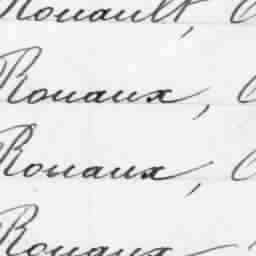 Rouault,
Rouaux,
Rouaux,
Rouaux